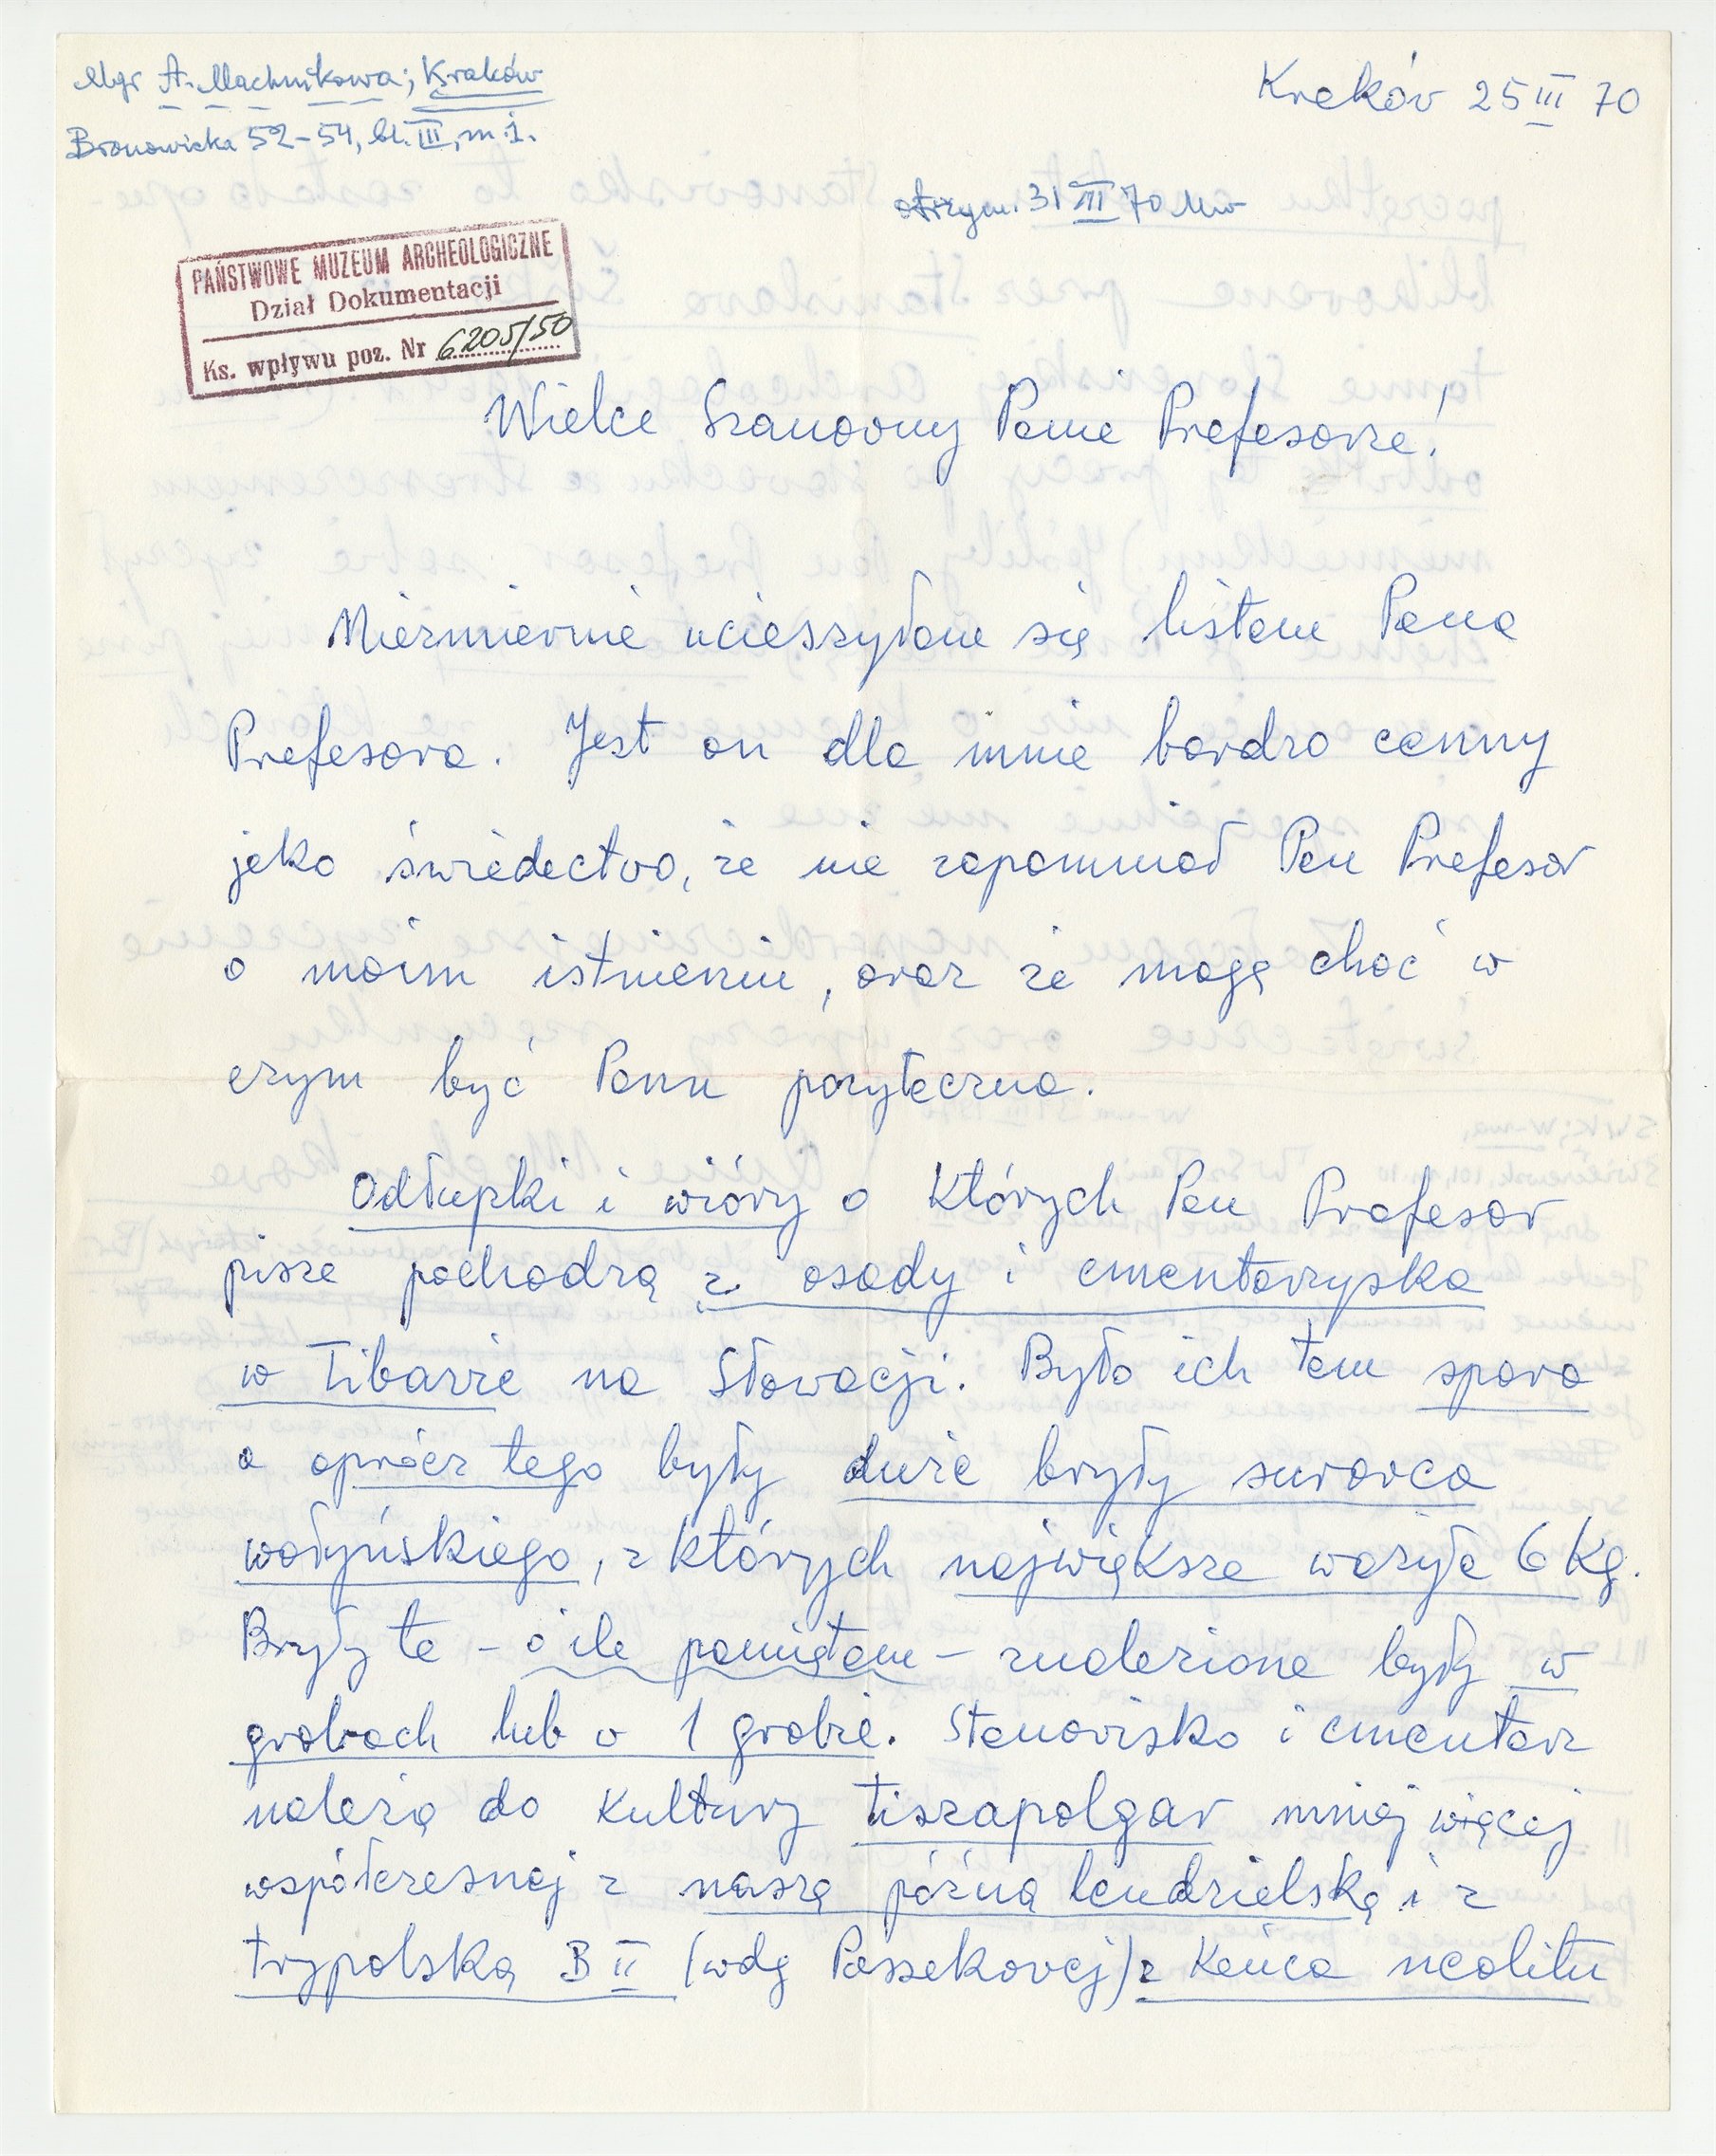 Mgr A. Machnikowa; Kraków
Bronowicka 52-54, bl. III, m. 1.
Kraków 25 III 70
otrzym. 31 III 70 
PAŃSTWOWE MUZEUM ARCHEOLOGICZNE
Dział Dokumentacji
Ks. wpływu poz. Nr 6205/50
Wielce Szanowny Panie Profesorze!
Niezmiernie ucieszyłam się listem Pana
Profesora. Jest on dla mnie bardzo cenny
jako świadectwo, że nie zapomniał Pan Profesor
o moim istnieniu, oraz że mogę choć w
czym być Panu pożyteczna.
Odłupki i wióry o których Pan Profesor
pisze pochodzą z osady i cmentarzyska
w Tibavie na Słowacji. Było ich tam sporo
a oprócz tego były duże bryły surowca
wołyńskiego, z których największa ważyła 6 kg.
Bryły te - o ile pamiętam - znalezione były w
grobach lub w 1 grobie. Stanowisko i cmentarz
należą do kultury tiszapolgar mniej więcej
współczesnej z naszą późną lendzielską i z
trypolską B II (wdg Passekowej) z końca neolitu